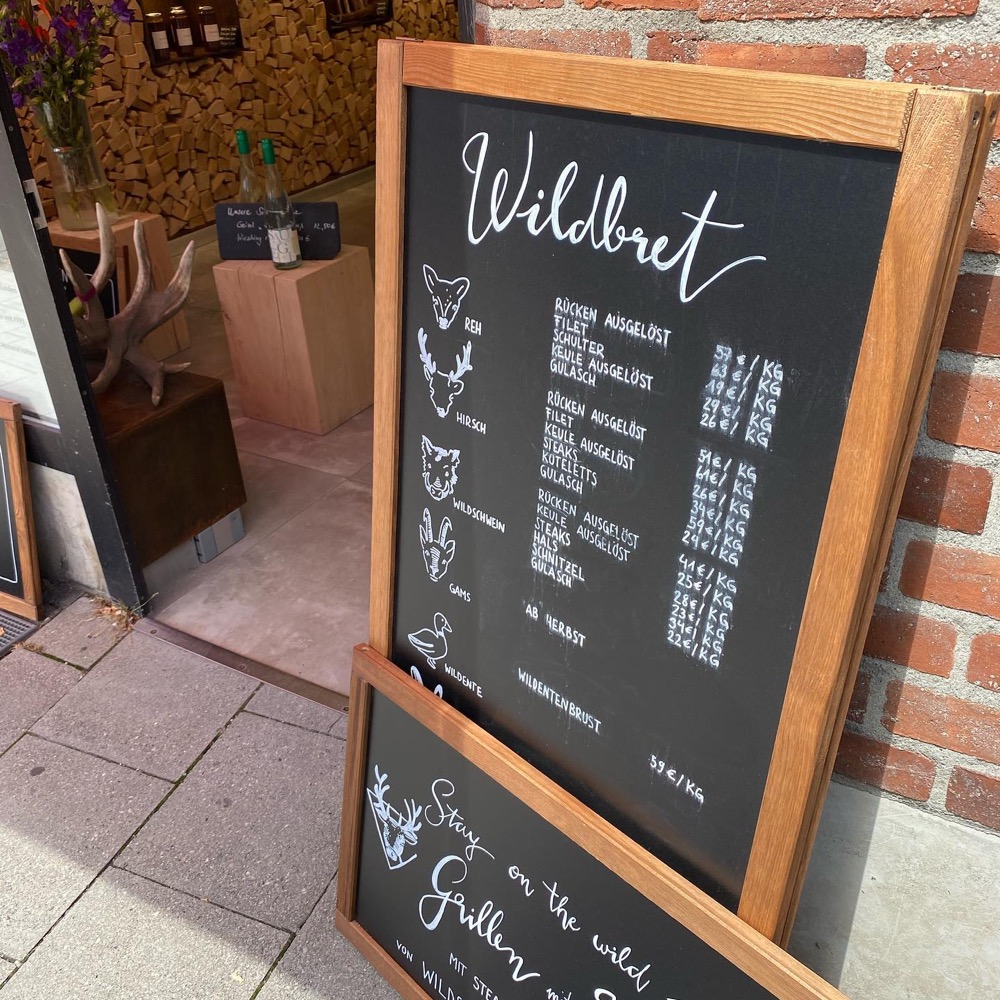 Wildbret
REH
RÜCKEN AUSGELÖST 57 €/KG
FILET 63 €/KG
SCHULTER 19 €/KG
KEULE AUSGELÖST 29 €/KG
GULASCH 26 €/KG
HIRSCH
RÜCKEN AUSGELÖST 51 €/KG
FILET 61 €/KG
KEULE AUSGELÖST 26 €/KG
STEAKS 34 €/KG
KOTELETTS 59 €/KG
GULASCH 24 €/KG
WILDSCHWEIN
RÜCKEN AUSGELÖST 41 €/KG
KEULE AUSGELÖST 25 €/KG
STEAKS 28 €/KG
HALS 23 €/KG
SCHNITZEL 34 €/KG
GULASCH 22 €/KG
GAMS
AB HERBST
WILDENTE
WILDENTENBRUST 59 €/KG
Stay on the wild
Grillen
MIT
VON
Unsere